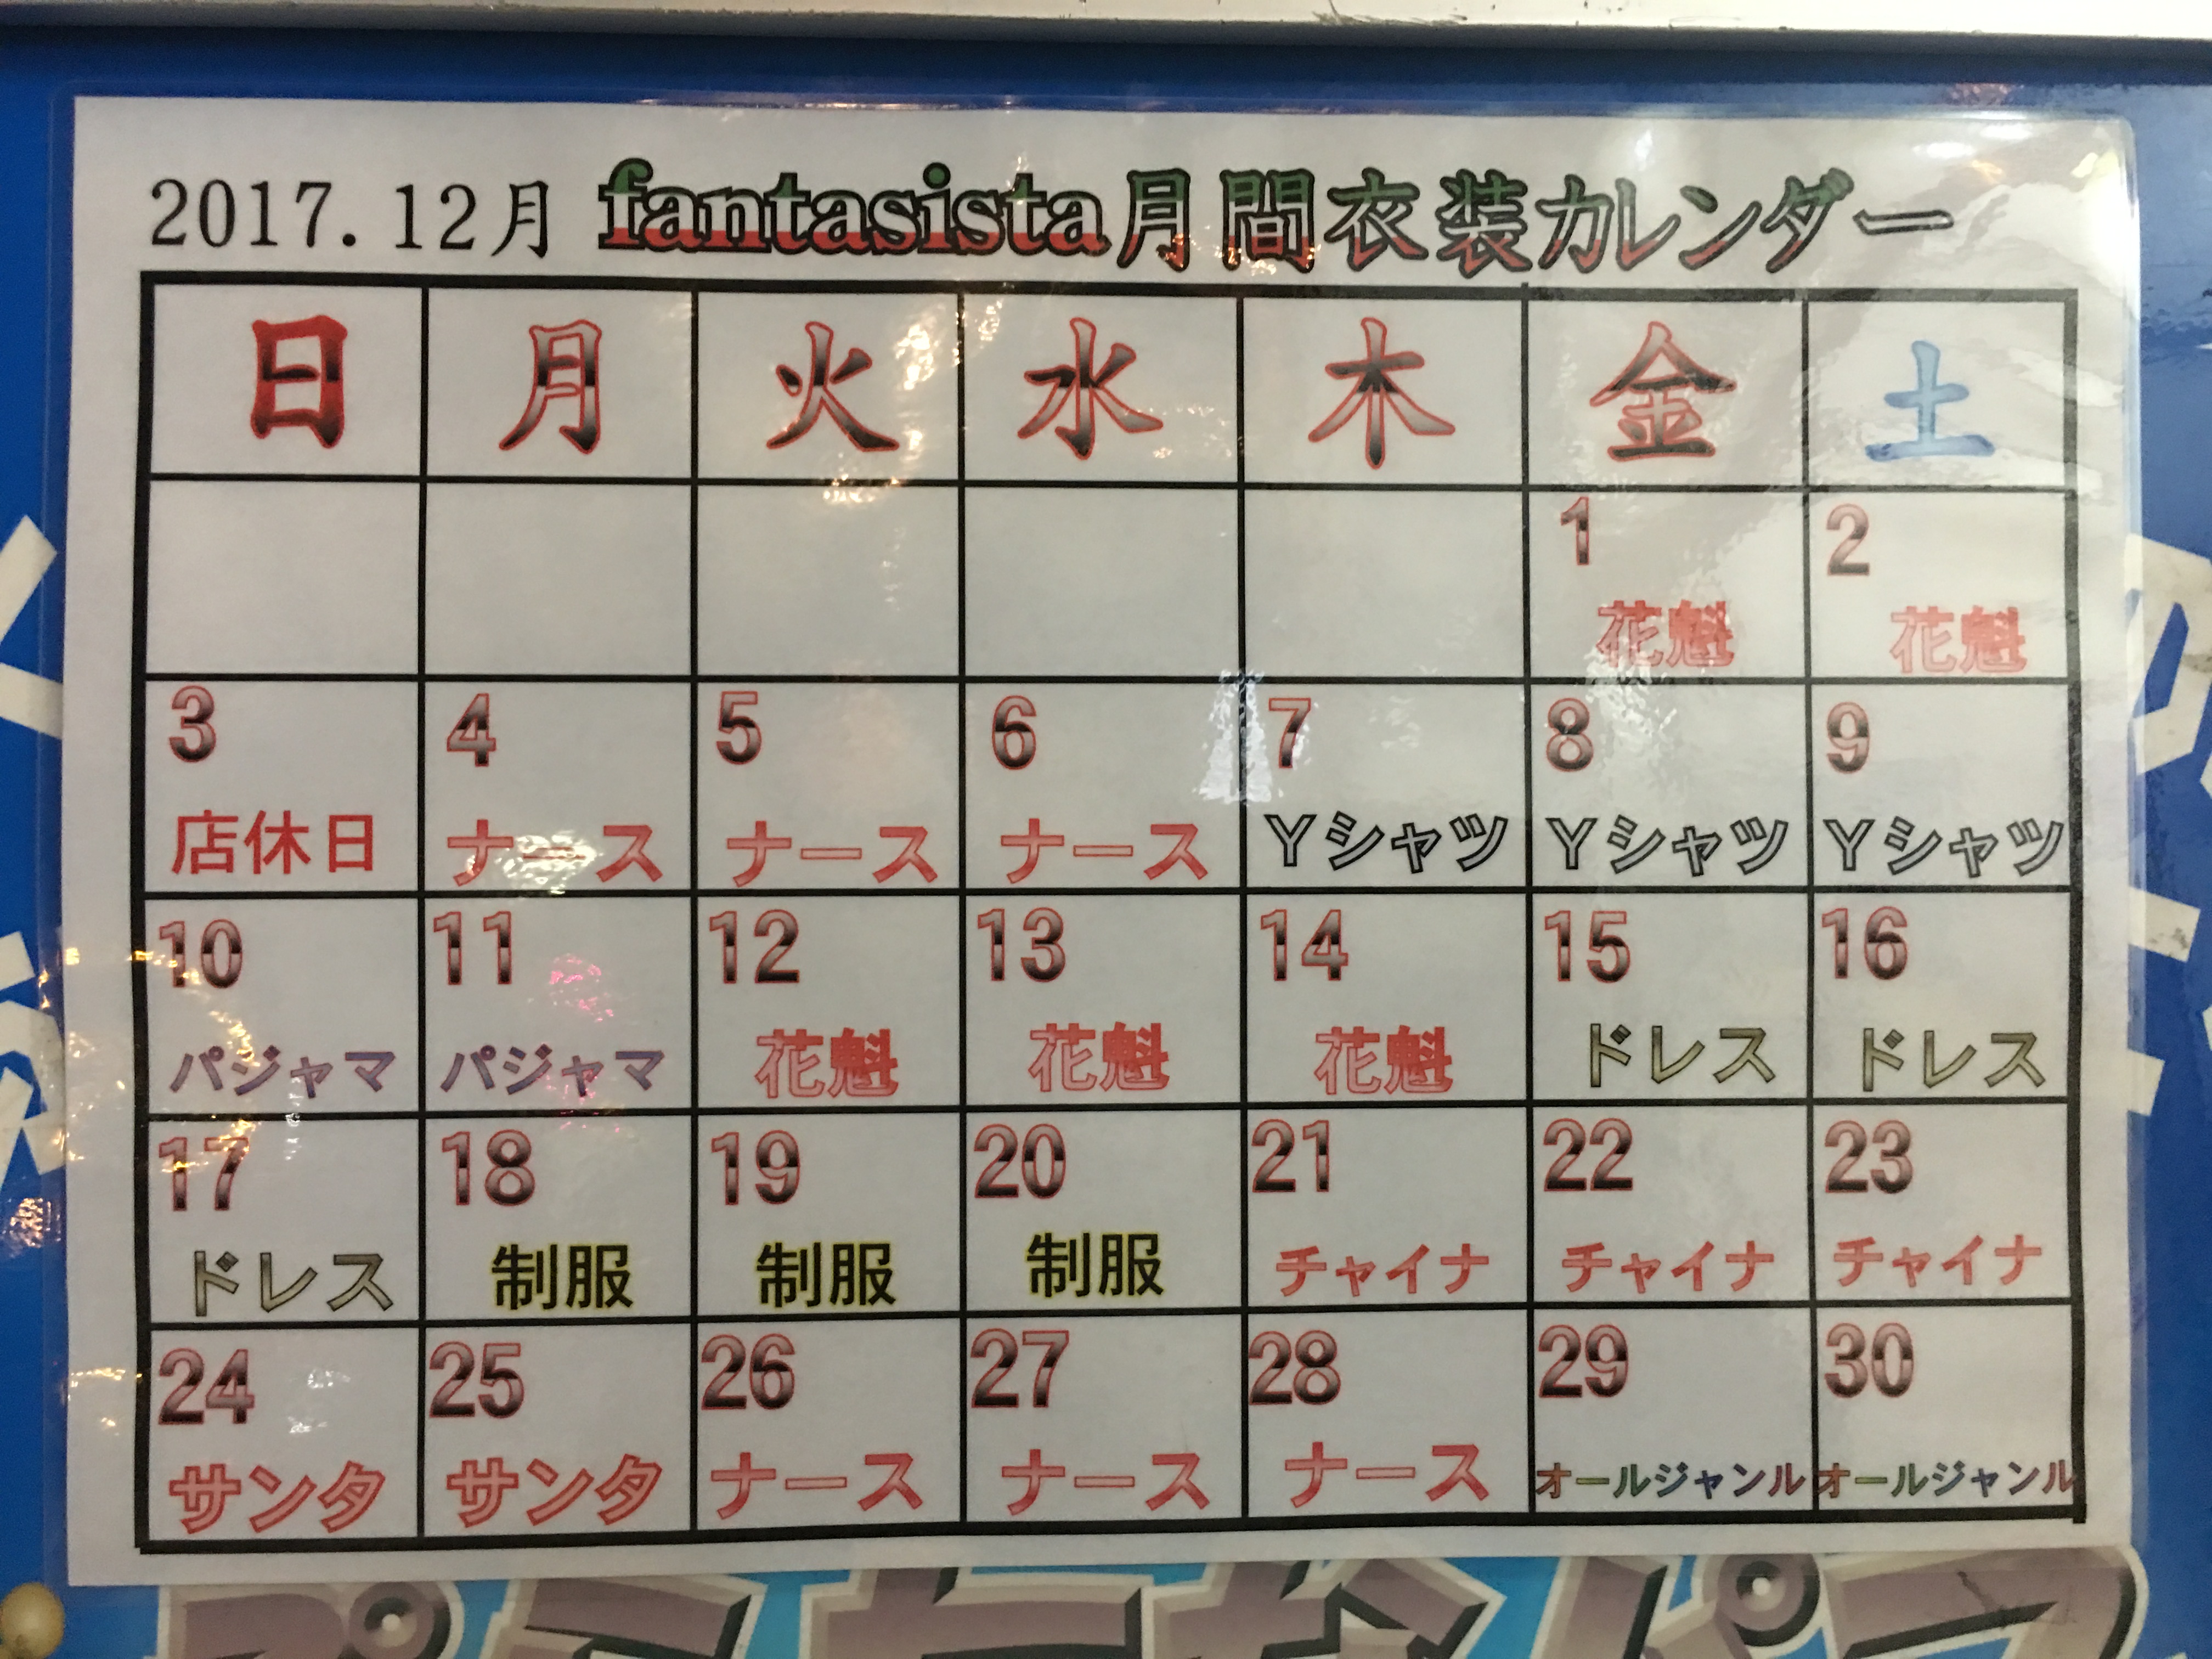 2017.12月 fantasista月間衣装カレンダー
日 月 火 水 木 金 土
1 2
花魁 花魁
3 4 5 6 7 8 9
店休日 ナース ナース ナース Yシャツ Yシャツ Yシャツ
10 11 12 13 14 15 16
パジャマ パジャマ 花魁 花魁 花魁 ドレス ドレス
17 18 19 20 21 22 23
ドレス 制服 制服 制服 チャイナ チャイナ チャイナ
24 25 26 27 28 29 30
サンタ サンタ ナース ナース ナース オールジャンル オールジャンル